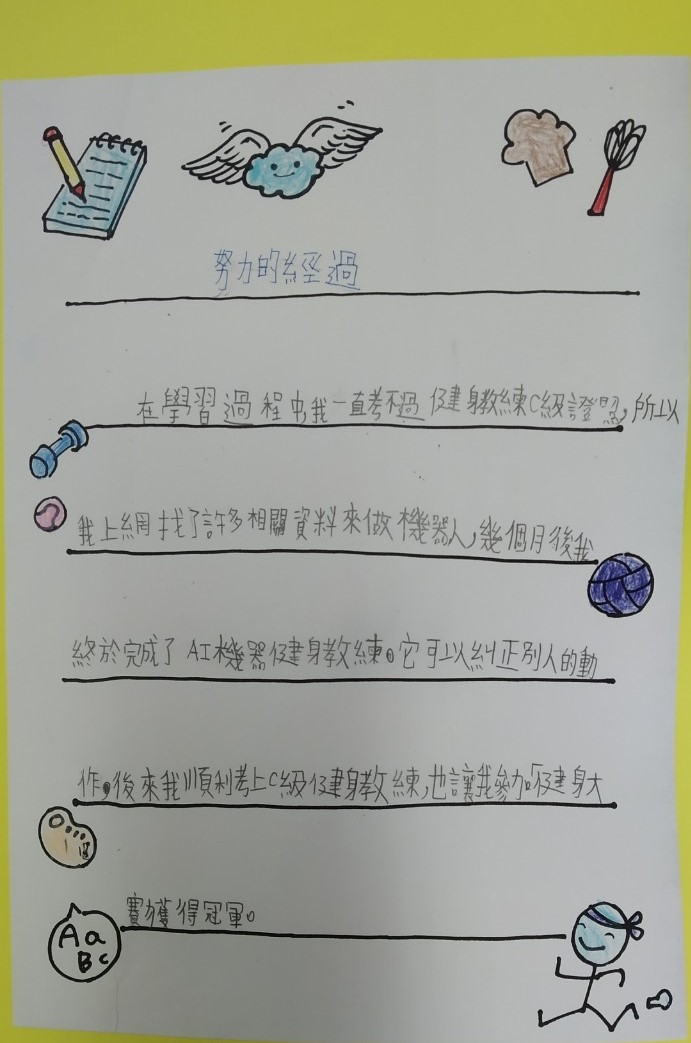 努力的經過
在學習過程中,我一直考不過健身教練C級證照,所以
我上網找了許多相關資料來做機器人,幾個月後我
終於完成了AI機器健身教練。它可以糾正別人的動
作,後來我順利考上C級健身教練,也讓我參加「健身大
賽」獲得冠軍。
Aa
Bc